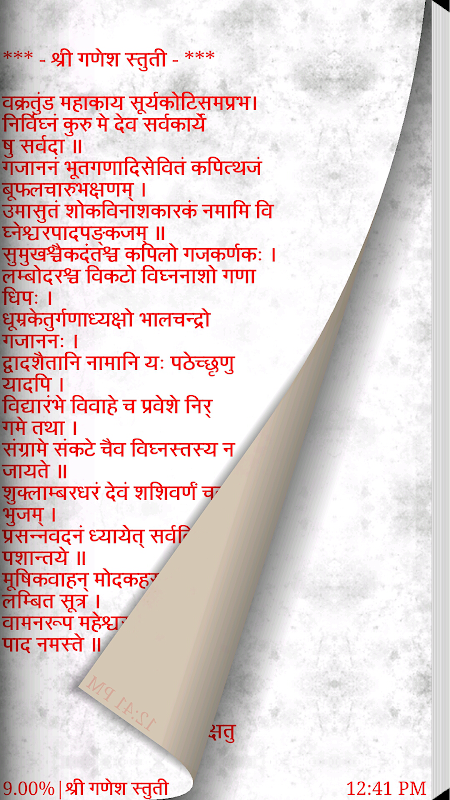 *** - श्री गणेश स्तुती - ***
वक्रतुंड महाकाय सूर्यकोटिसमप्रभ।
निर्विघ्नं कुरु मे देव सर्वकार्ये
षु सर्वदा ॥
गजाननं भूतगणादिसेवितं कपित्थजं
बूफलचारुभक्षणम् ।
उमासुतं शोकविनाशकारकं नमामि वि
घ्नेश्वरपादपङ्कजम् ॥
सुमुखश्चैकदंतश्च कपिलो गजकर्णकः ।
लम्बोदरश्च विकटो विघ्ननाशो गणा
धिपः ।
धूम्रकेतुर्गणाध्यक्षो भालचन्द्रो
गजाननः ।
द्वादशैतानि नामानि यः पठेच्छृणु
यादपि ।
विद्यारंभे विवाहे च प्रवेशे निर्
गमे तथा ।
संग्रामे संकटे चैव विघ्नस्तस्य न
जायते ॥
शुक्लाम्बरधरं देवं शशिवर्णं
भुजम् ।
प्रसन्नवदनं ध्यायेत्
पशान्तये ॥
मूषिकवाहन्
लम्बित सूत्र ।
वामनरूप
पाद नमस्ते ॥
क्षतु
12:41 PM
9.00%|श्री गणेश स्तुती 12:41 PM